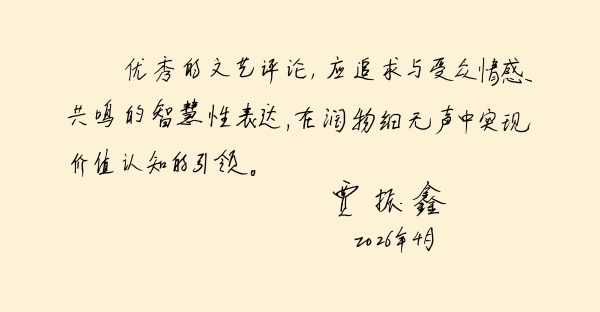 优秀的文艺评论,应追求与受众情感、
共鸣的智慧性表达,在润物细无声中实现
价值认知的引领。
贾振鑫
2026年4月